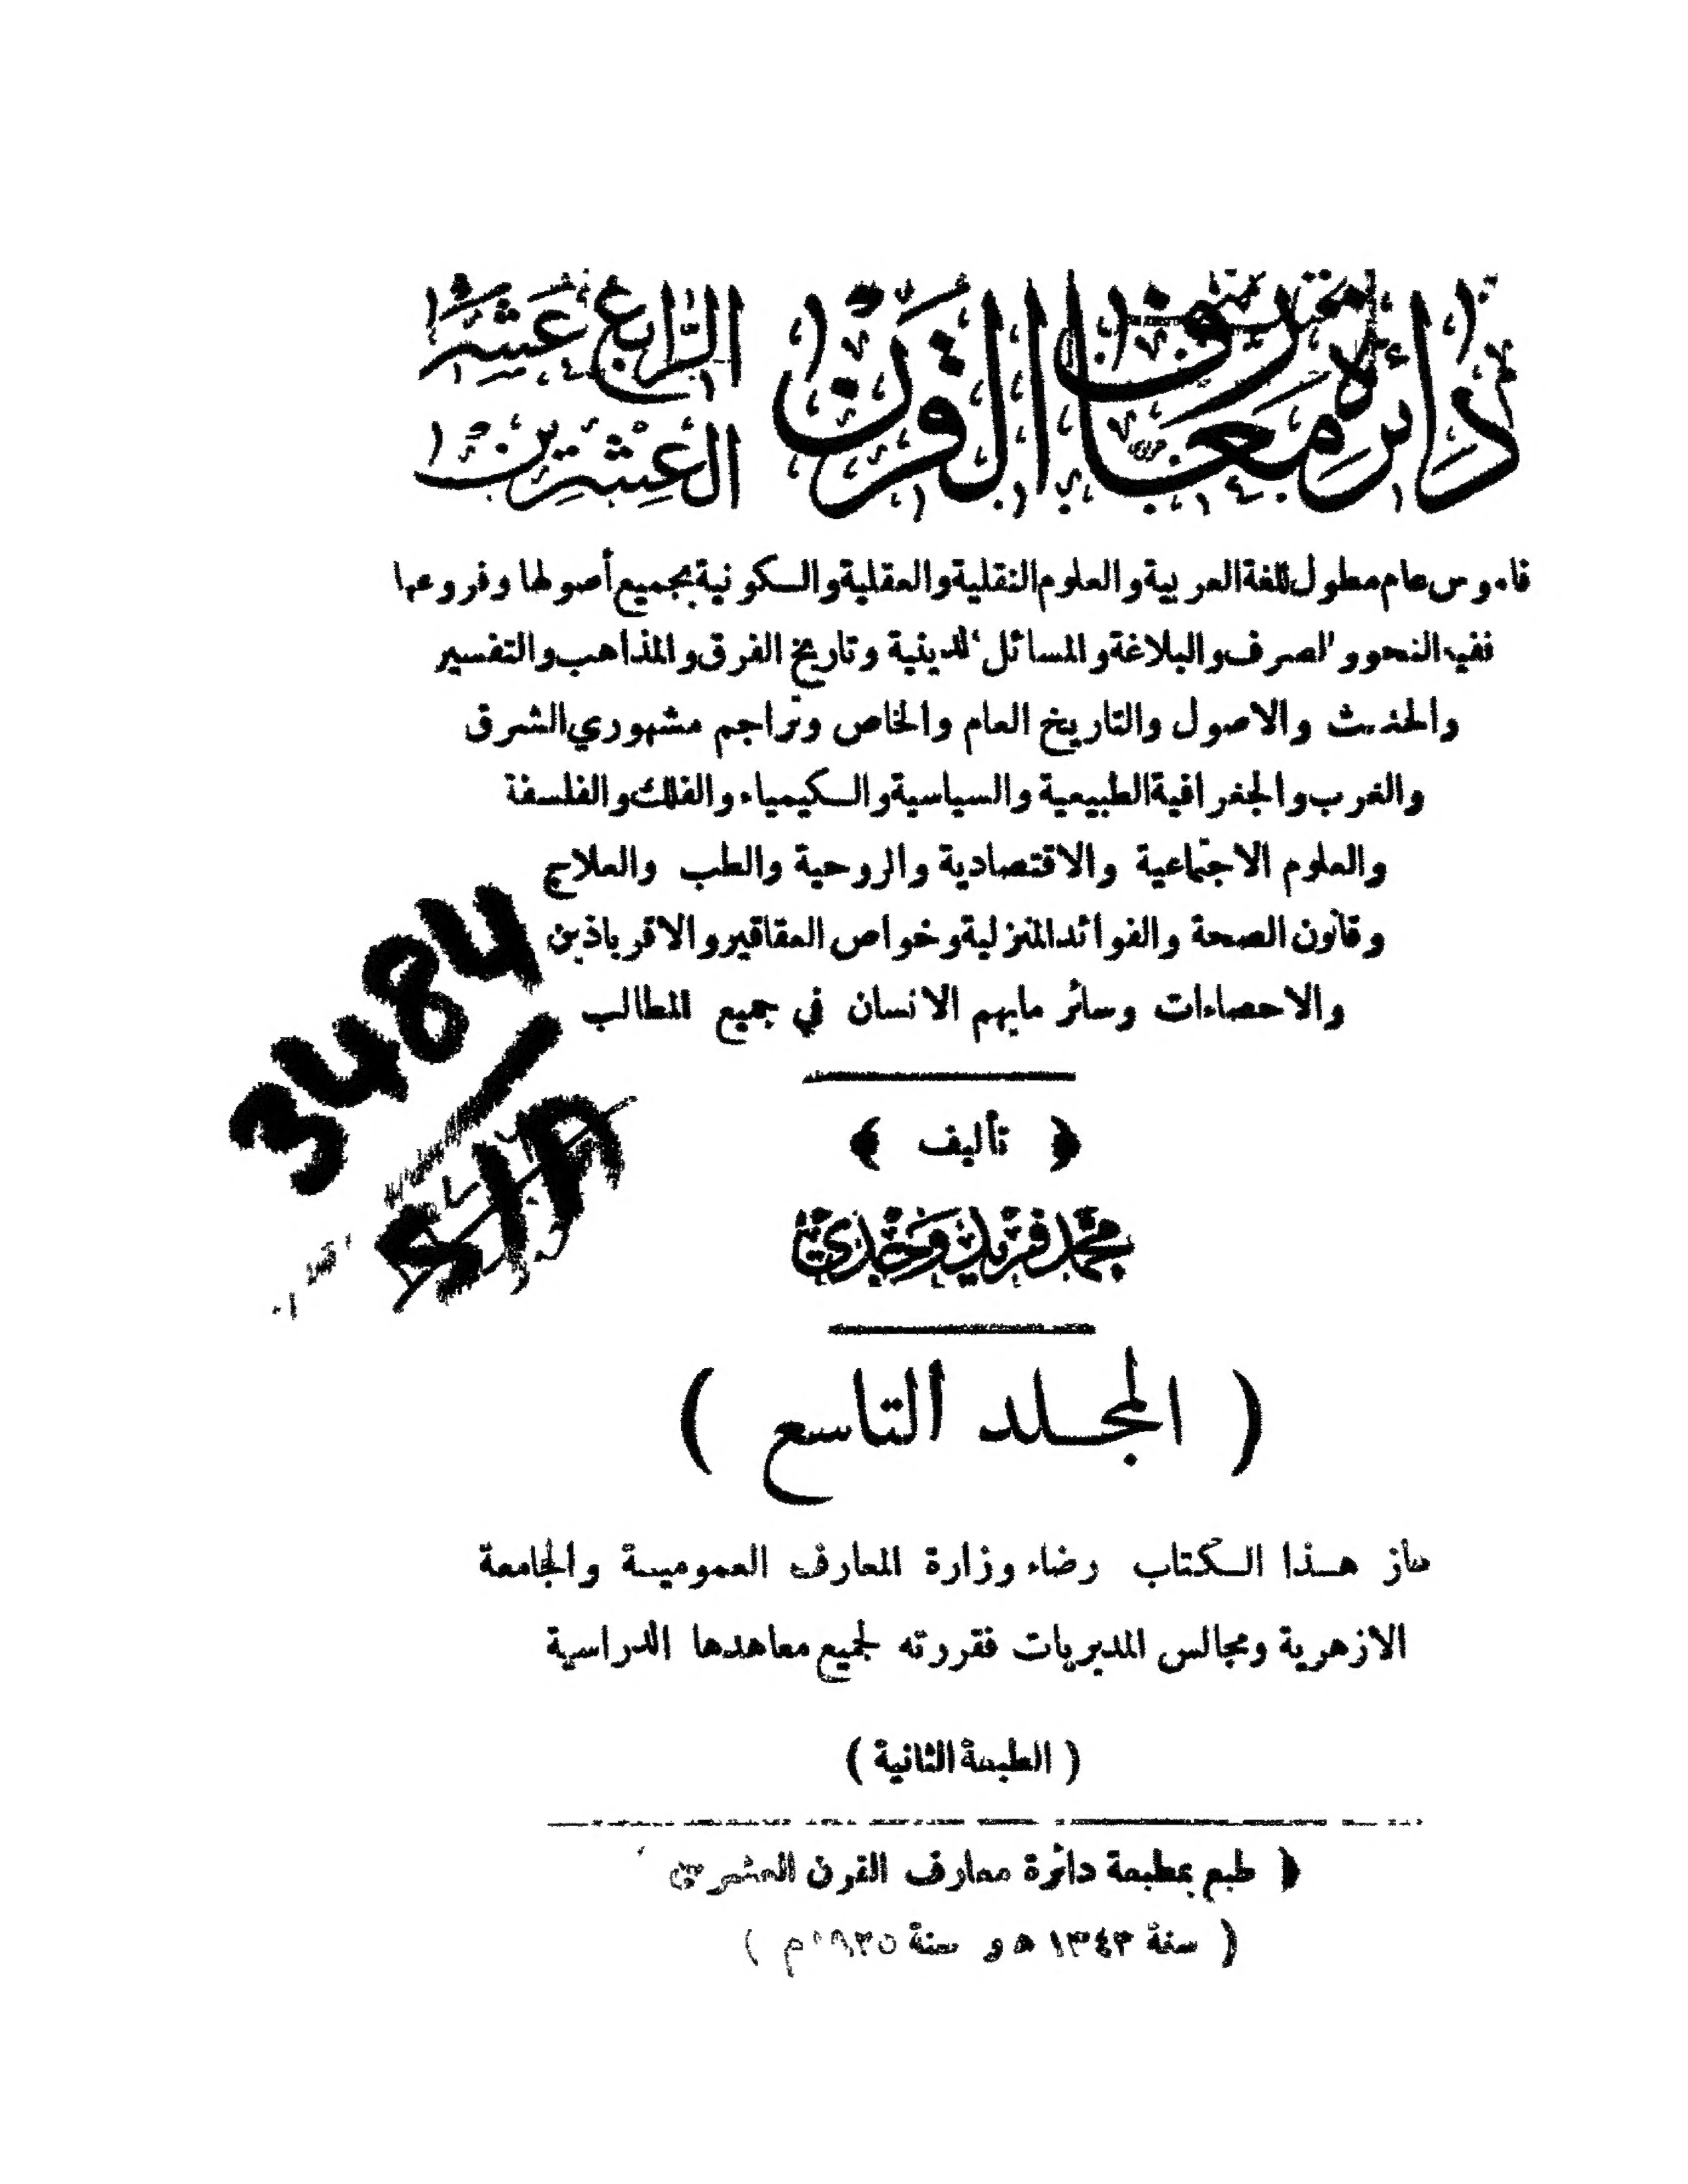 دائرة معارف القرن الرابع عشر
العشرين
قاموس عام مطول للغة العربية والعلوم النقلية والعقلية والكونية بجميع أصولها وفروعها
ففيه النحو والصرف والبلاغة والمسائل الدينية وتاريخ الفرق والمذاهب والتفسير
والحديث والاصول والتاريخ العام والخاص وتراجم مشهوري الشرق
والغرب والجغرافية الطبيعية والسياسية والكيمياء والفلك والفلسفة
والعلوم الاجتماعية والاقتصادية والروحية والطب والعلاج
وقانون الصحة والفوائد المنزلية وخواص العقاقير والاقرباذين
والاحصاءات وسائر مايهم الانسان في جميع المطالب
3484
﴿ تأليف ﴾
محمد فريد وجدي
( المجلد التاسع )
حاز هذا الكتاب رضاء وزارة المعارف العمومية والجامعة
الازهرية ومجالس المديريات فقررته لجميع معاهدها الدراسية
( الطبعة الثانية )
﴿ طبع بمطبعة دائرة معارف القرن العشرين
( سنة ١٣٤٣ هـ و سنة ١٩٢٥ م )